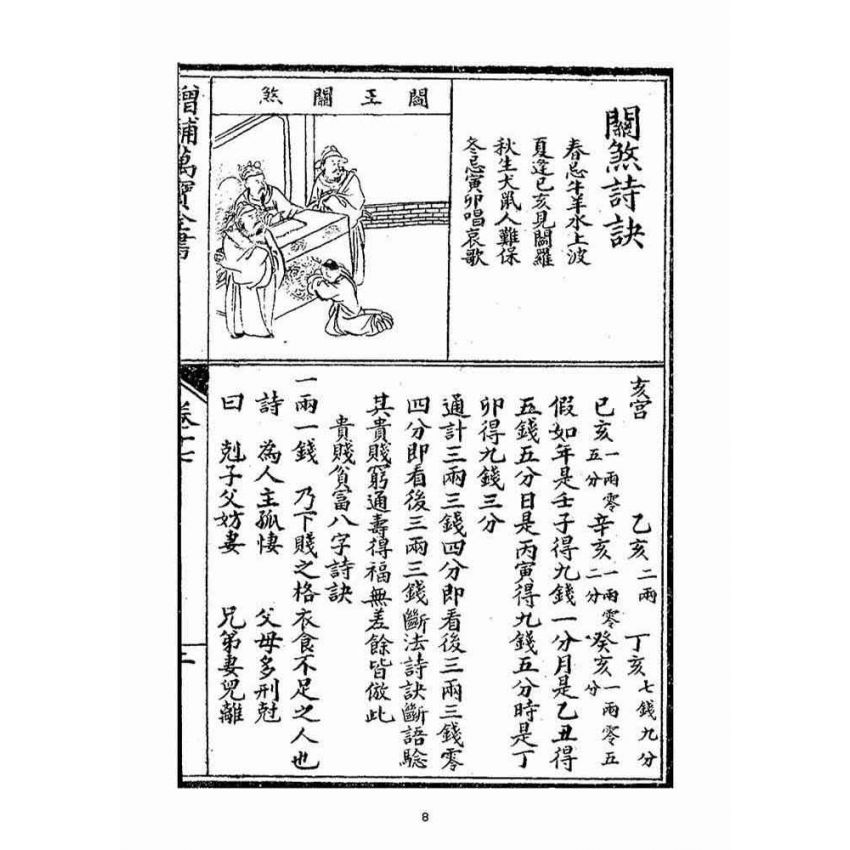 關煞詩訣
春忌牛羊水上波
夏逢巳亥見閻羅
秋生犬鼠人難保
冬忌寅卯唱哀歌
閻王關煞
亥宮 乙亥二兩 丁亥七錢九分
已亥一兩零五分 辛亥一兩零二分 癸亥一兩零五分
假如年是壬子得九錢一分月是乙丑得
五錢五分日是丙寅得九錢五分時是丁
卯得九錢三分
通計三兩三錢四分即看後三兩三錢零
四分即看後三兩三錢斷法詩訣斷語騐
其貴賤窮通壽得福無差餘皆倣此
貴賤貧富八字詩訣
一兩一錢 乃下賤之格衣食不足之人也
詩 為人主孤悽 父母多刑尅
曰 尅子父妨妻 兄弟妻兒離
增補萬寶全書
卷十七
三
8